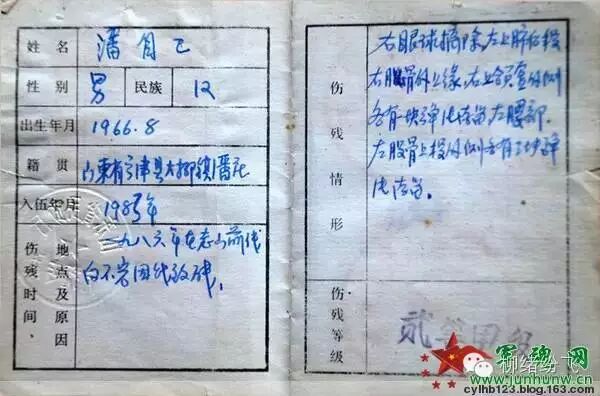 姓名 潘自己
性别 男 民族 汉
出生年月 1966.8
籍贯 山东省宁津县大柳镇潘
入伍年月 1985年
伤残时间、地点及原因
一九八六年在老山前线
因线致残。
伤残情形
右眼球摘除,左上肺
右股骨外上缘,右上颌窦外侧
各有一块弹片存留,左腰部、
左股骨上段外侧各有二块弹
片存留。
伤残等级 贰等
柳绪纷飞
军魂网
www.junhunw.cn
cylhb123.blog.163.com